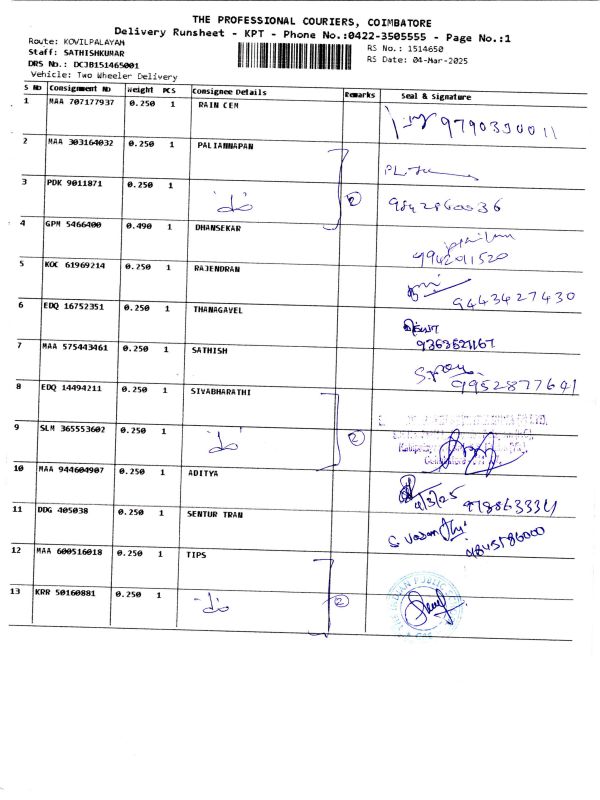 THE PROFESSIONAL COURIERS, COIMBATORE
Delivery Runsheet - KPT - Phone No.:0422-3505555 - Page No.:1
Route: KOVILPALAYAM
RS No.: 1514650
Staff: SATHISHKUMAR
RS Date: 04-Mar-2025
DRS No.: DCJB151465001
Vehicle: Two Wheeler Delivery
S No Consignment No Weight PCS Consignee Details Remarks Seal & Signature
1 MAA 707177937 0.250 1 RAIN CEM 9790390011
2 MAA 303164032 0.250 1 PALIANNAPAN
3 PDK 9011871 0.250 1 2 9842860536
4 GPM 5466400 0.490 1 DHANSEKAR 9942911520
5 KOC 61969214 0.250 1 RAJENDRAN 9443427430
6 EDQ 16752351 0.250 1 THANAGAVEL 9363621167
7 MAA 575443461 0.250 1 SATHISH 9952877641
8 EDQ 14494211 0.250 1 SIVABHARATHI
9 SLM 365553602 0.250 1 2
10 MAA 944604907 0.250 1 ADITYA 4/3/25
11 DDG 405038 0.250 1 SENTUR TRAN
12 MAA 600516018 0.250 1 TIPS
13 KRR 50160881 0.250 1 2